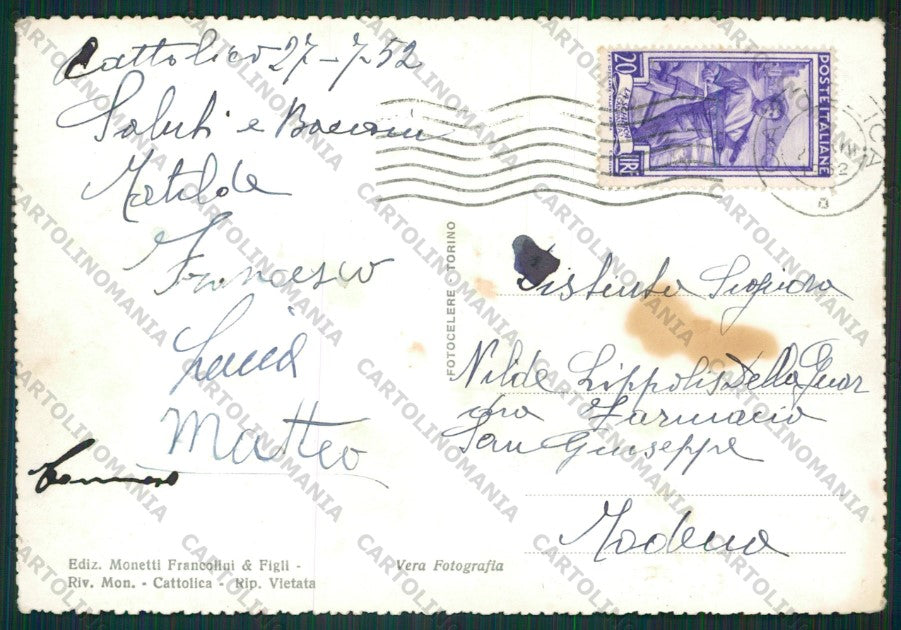 Cattolica 27-7-52
Saluti e Bacioni
Matilde
Francesco
Lucia
Matteo
Tommaso
Ediz. Monetti Francolini & Figli -
Riv. Mon. - Cattolica - Rip. Vietata
Vera Fotografia
FOTOCELERE - TORINO
20
LIRE
POSTE ITALIANE
Distinta Signora
Nilde Lippolis Della Guar
dia Farmacia
San Giuseppe
Modena
CARTOLINOMANIA